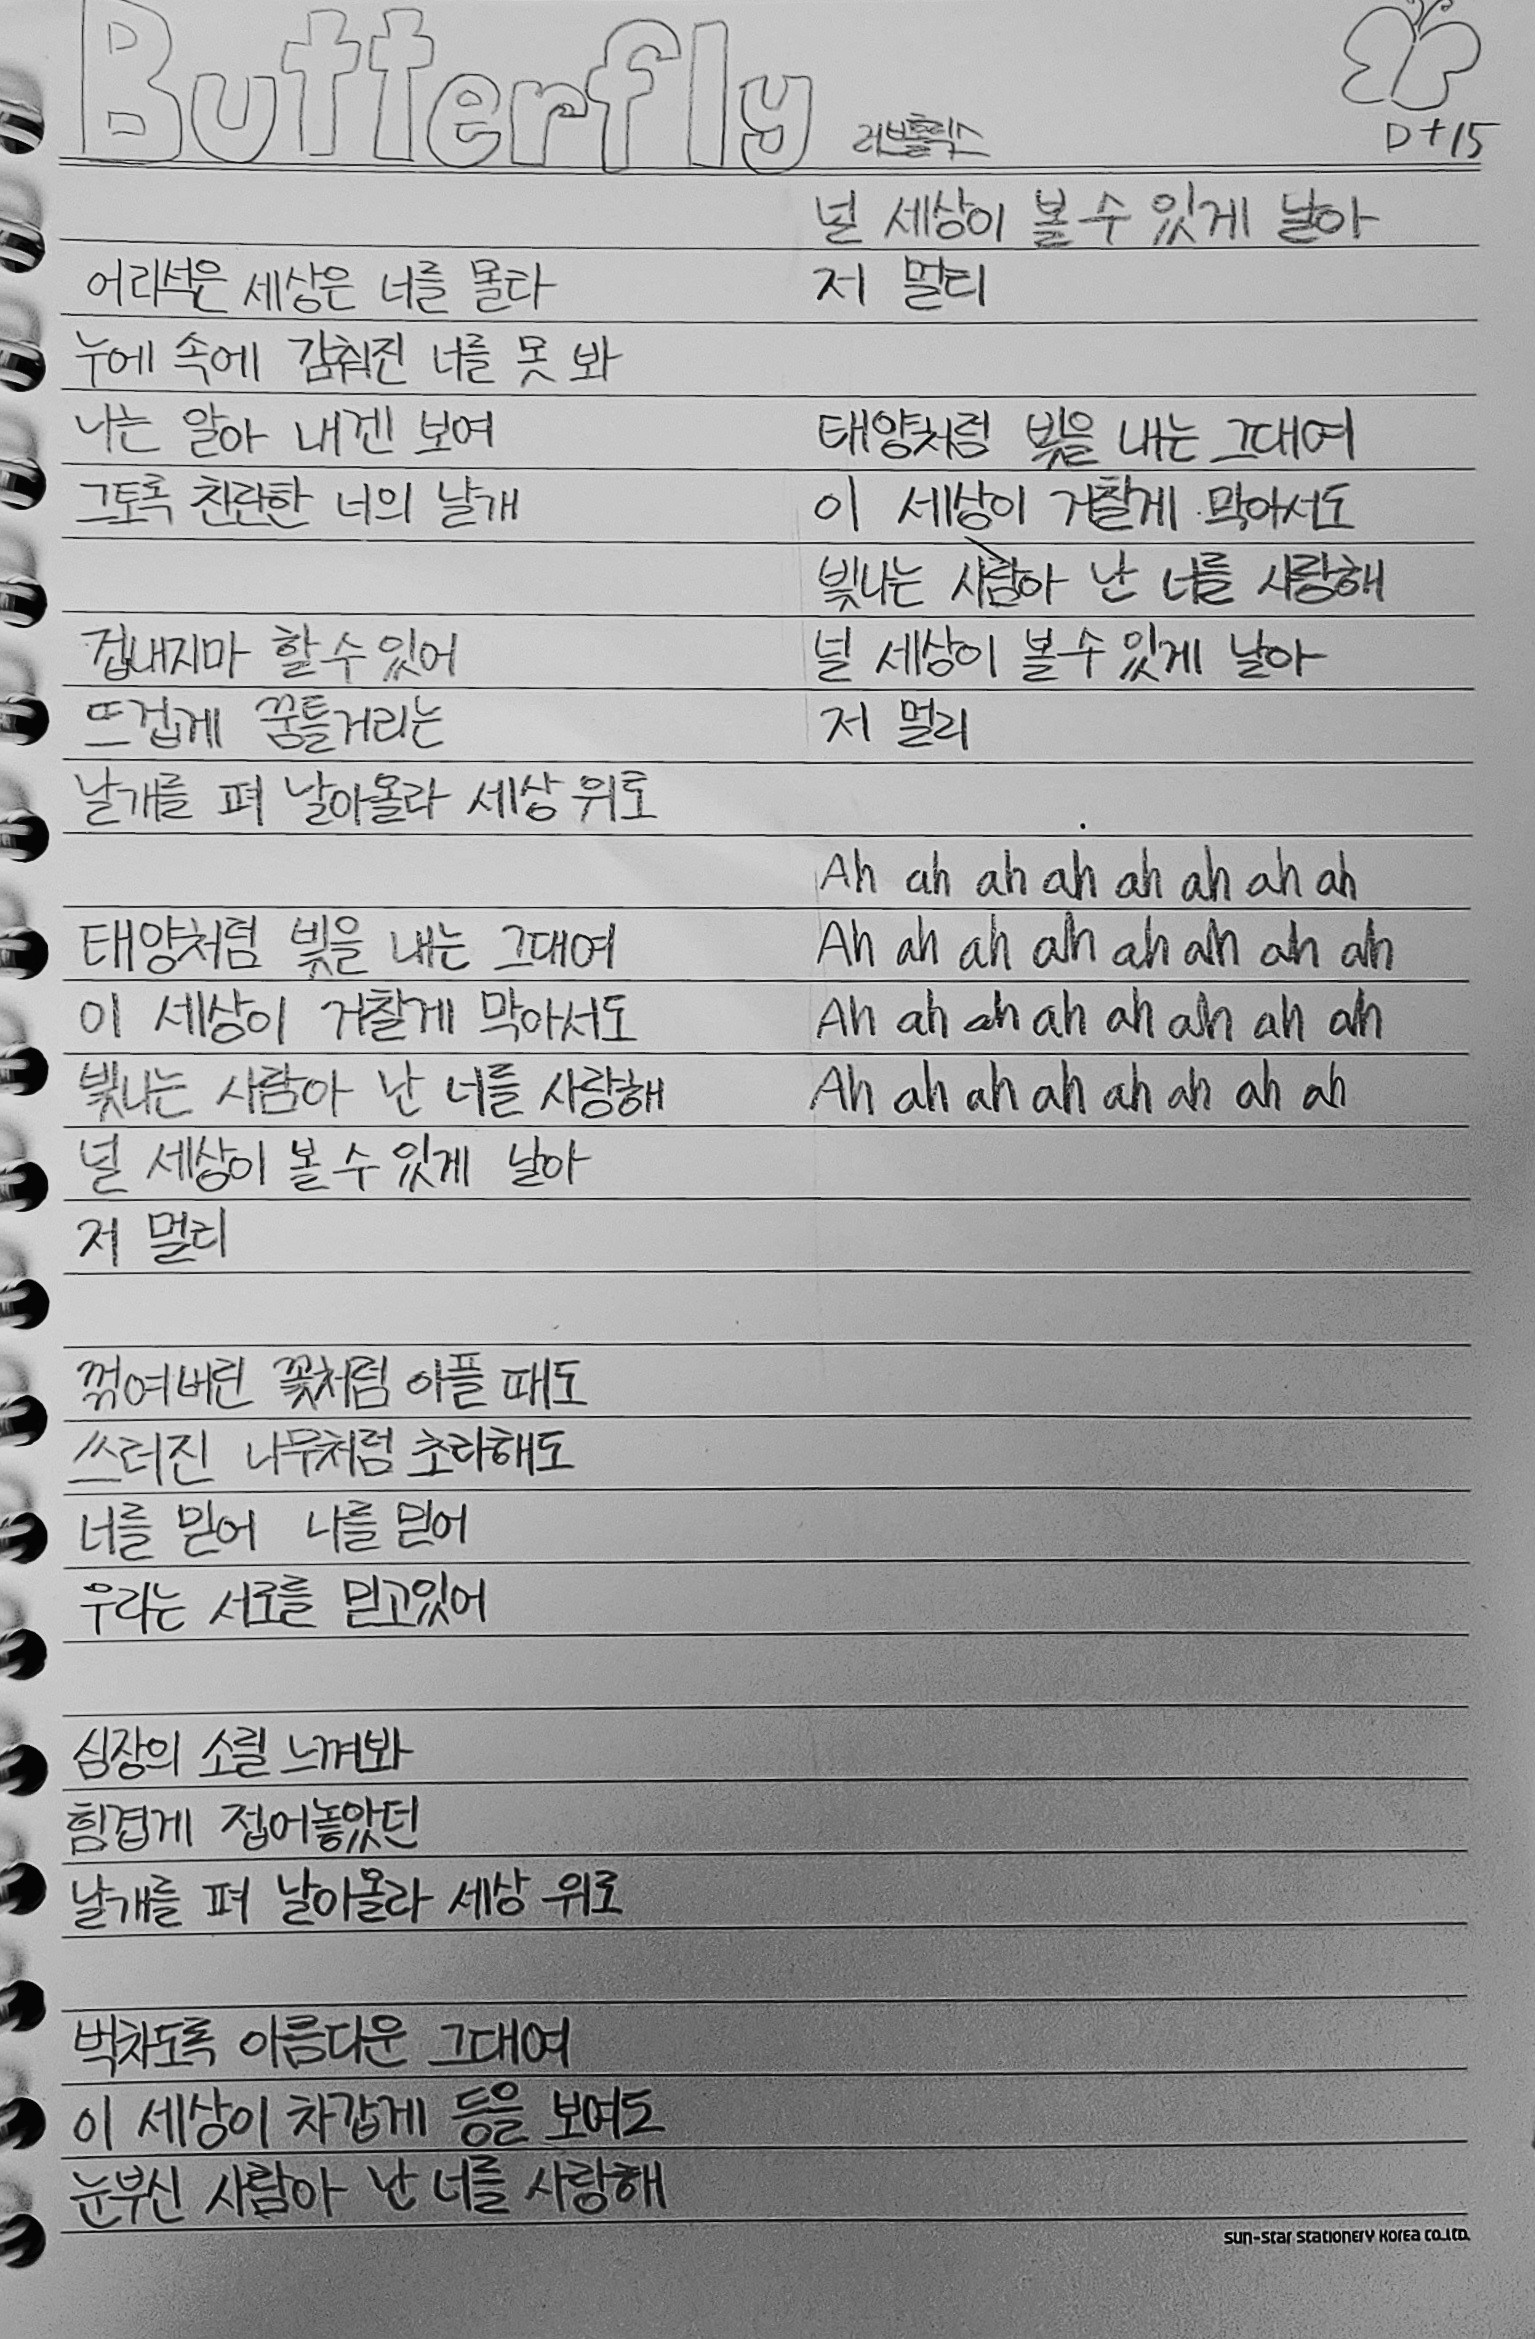 Butterfly 러브홀릭스
D+15
어리석은 세상은 너를 몰라
누에 속에 감춰진 너를 못 봐
나는 알아 내겐 보여
그토록 찬란한 너의 날개
겁내지마 할 수 있어
뜨겁게 꿈틀거리는
날개를 펴 날아올라 세상 위로
태양처럼 빛을 내는 그대여
이 세상이 거칠게 막아서도
빛나는 사람아 난 너를 사랑해
널 세상이 볼 수 있게 날아
저 멀리
꺾여버린 꽃처럼 아플 때도
쓰러진 나무처럼 초라해도
너를 믿어 나를 믿어
우리는 서로를 믿고있어
심장의 소릴 느껴봐
힘겹게 접어놓았던
날개를 펴 날아올라 세상 위로
벅차도록 아름다운 그대여
이 세상이 차갑게 등을 보여도
눈부신 사람아 난 너를 사랑해
널 세상이 볼 수 있게 날아
저 멀리
태양처럼 빛을 내는 그대여
이 세상이 거칠게 막아서도
빛나는 사람아 난 너를 사랑해
널 세상이 볼 수 있게 날아
저 멀리
Ah ah ah ah ah ah ah ah
Ah ah ah ah ah ah ah ah
Ah ah ah ah ah ah ah ah
Ah ah ah ah ah ah ah ah
Sun-Star Stationery Korea Co.,Ltd.